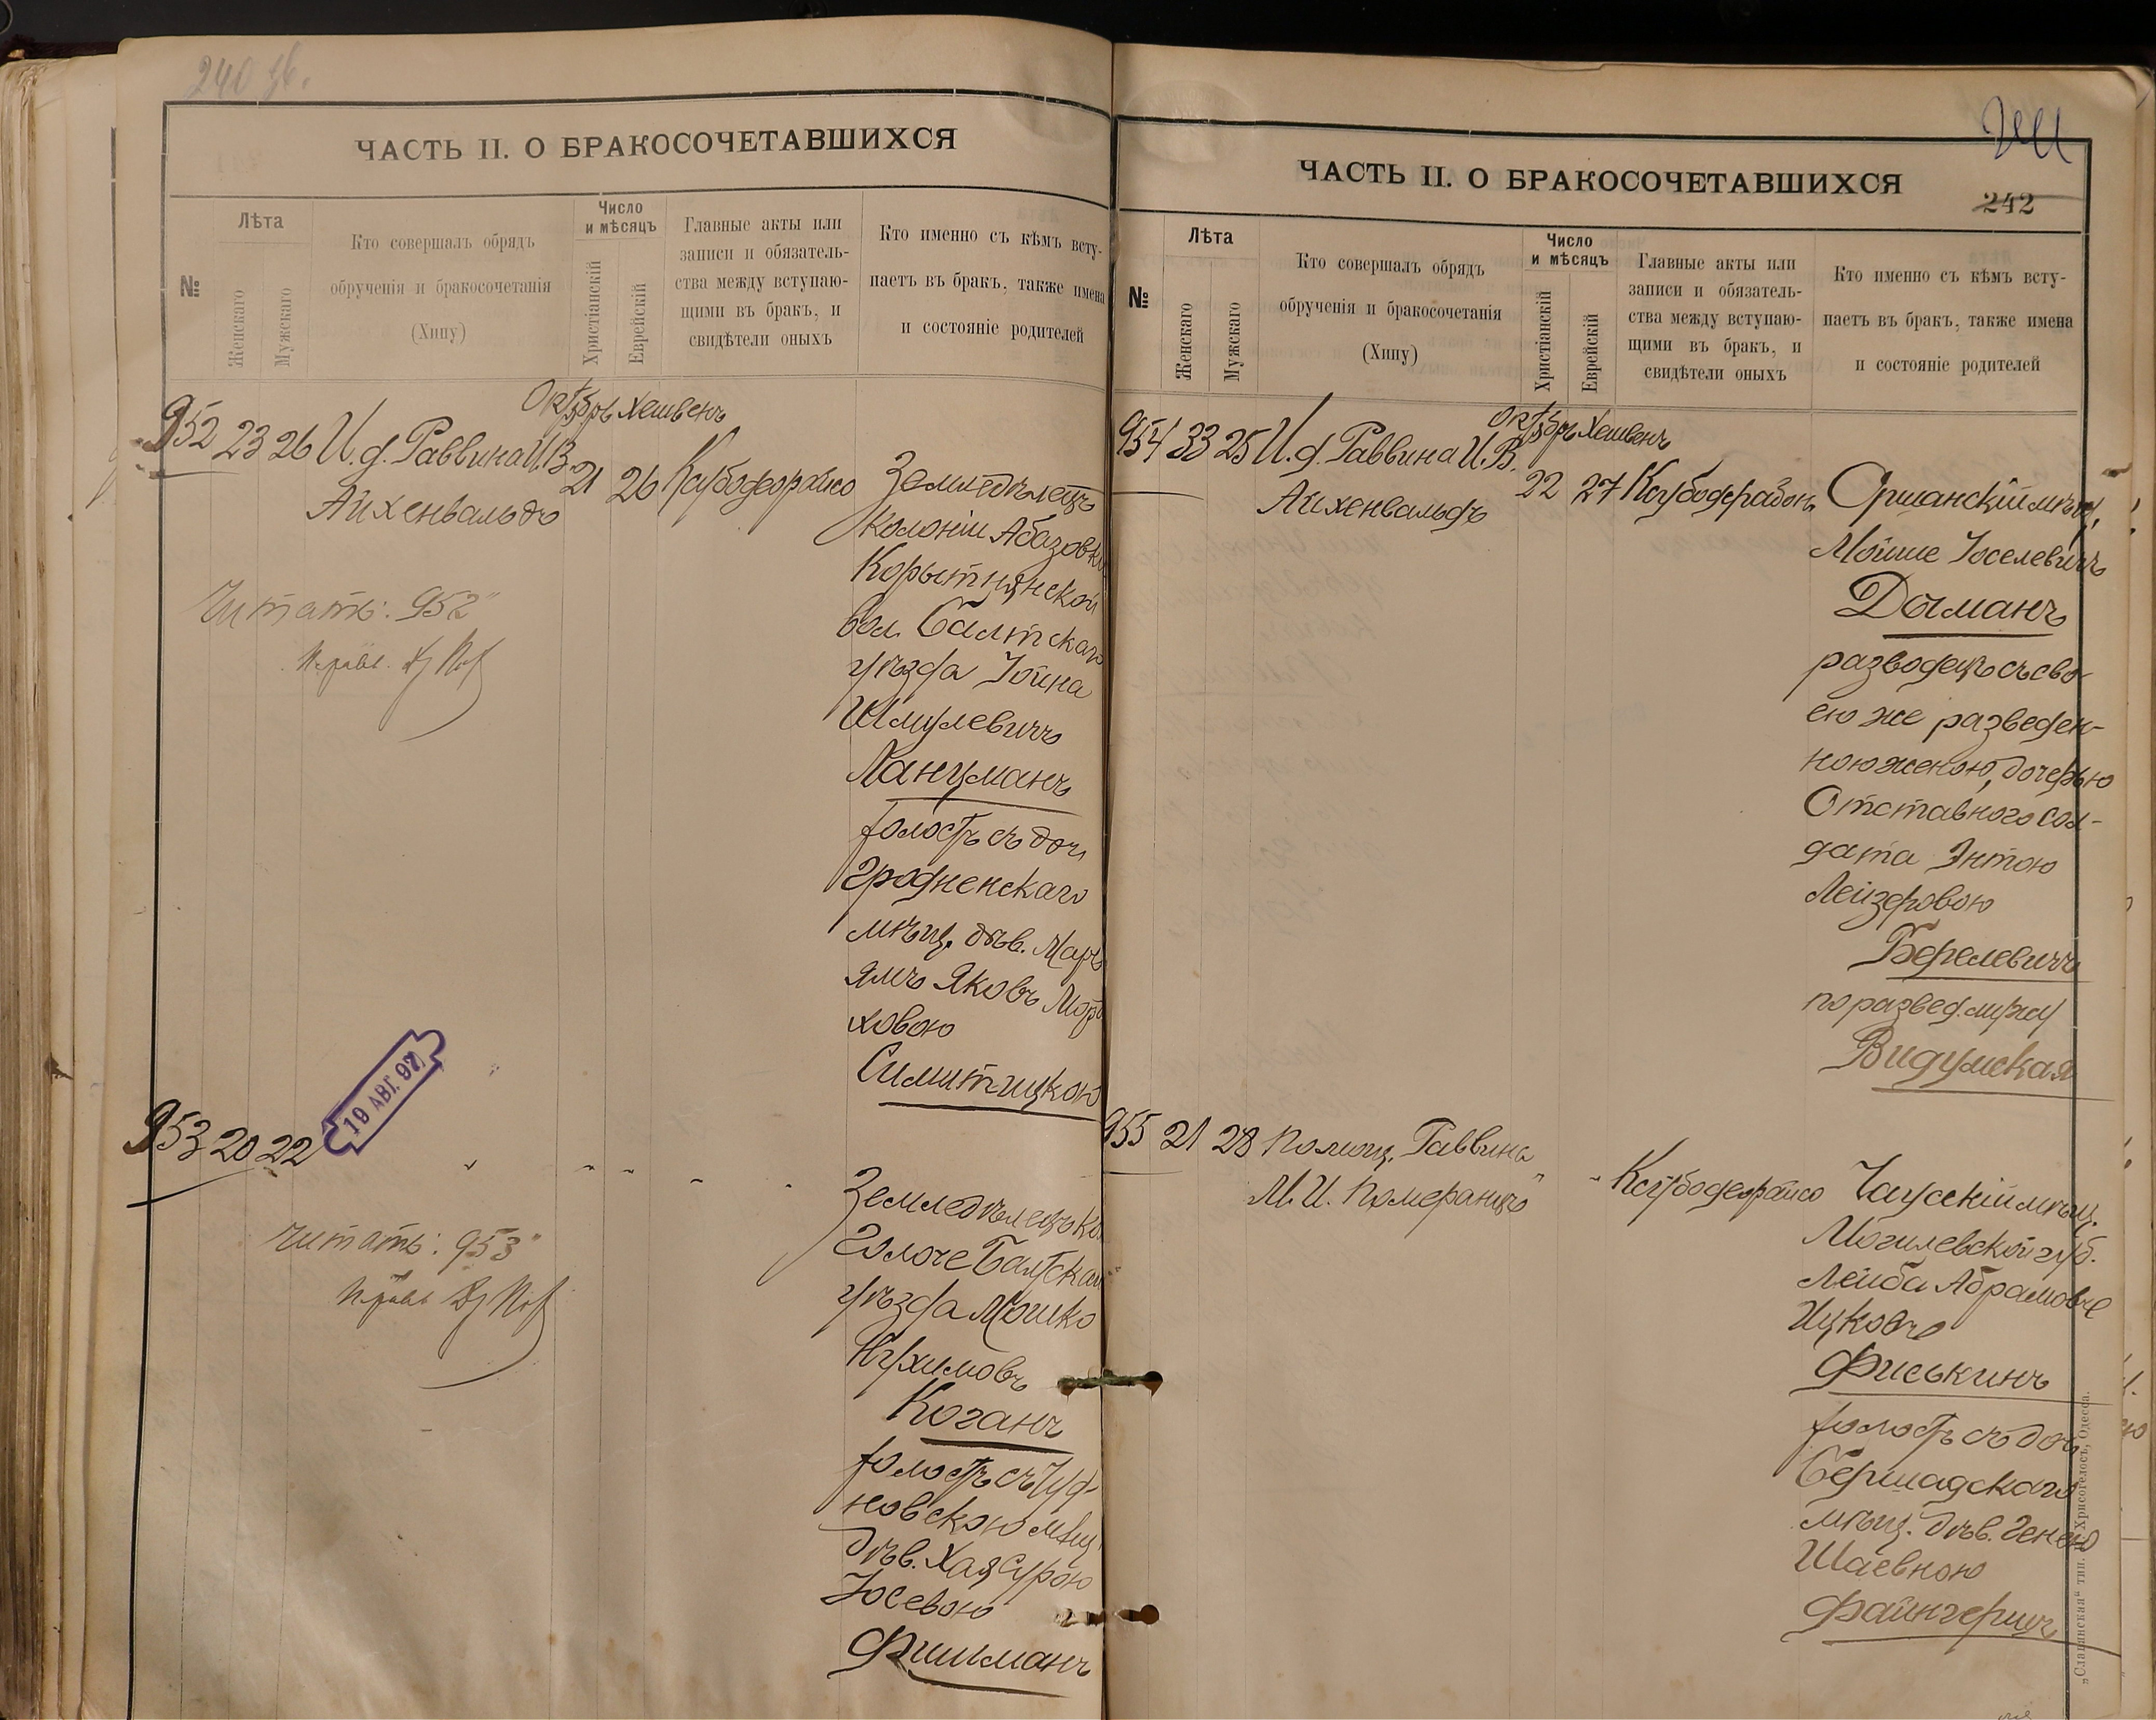 240 зв.
ЧАСТЬ II. О БРАКОСОЧЕТАВШИХСЯ
№
Лѣта
Женскаго
Мужскаго
Кто совершалъ обрядъ
обрученія и бракосочетанія
(Хипу)
Число
и мѣсяцъ
Христіанскій
Еврейскій
Главные акты или
записи и обязатель-
ства между вступаю-
щими въ бракъ, и
свидѣтели оныхъ
Кто именно съ кѣмъ всту-
паетъ въ бракъ, также имена
и состояніе родителей
Октябрь Хешвенъ
952 23 26 И. д. Раввина И. В.
Айхенвальдъ
21 26
Земледѣлецъ
колоніи Абазовки
Корытнянской
вол. Балтскаго
уѣзда Іойна
Шмулевичъ
Ланцманъ
холостъ съ доч.
Гродненскаго
мѣщ. дѣв.
ямъ Яковъ
ховою
Читать: 952"
19 АВГ. 97
953 20 22
Земледѣлецъ ко.
Балтскаго
уѣзда Мошко
Нухимовъ
Коганъ
холостъ съ Чуд-
новскою мѣщ.
дѣв. Хая Сурою
Іосевою
Фишманъ
Читать: 953"
241
ЧАСТЬ II. О БРАКОСОЧЕТАВШИХСЯ
242
№
Лѣта
Женскаго
Мужскаго
Кто совершалъ обрядъ
обрученія и бракосочетанія
(Хипу)
Число
и мѣсяцъ
Христіанскій
Еврейскій
Главные акты или
записи и обязатель-
ства между вступаю-
щими въ бракъ, и
свидѣтели оныхъ
Кто именно съ кѣмъ всту-
паетъ въ бракъ, также имена
и состояніе родителей
Октябрь Хешвенъ
954 33 25 И. д. Раввина И. В.
Айхенвальдъ
22 27
Оршанскій мѣщ.
Мойше Іоселевичъ
Дыманъ
разводецъ съ сво-
ею же разведен-
ною женою, дочерью
Отставного сол-
дата Энтою
Лейзеровою
Берелевичъ
по развед. мужу
Видумская
955 21 28 Помощ. Раввина
М. И. Померанцъ
" "
Чаусскій мѣщ.
Могилевской губ.
Лейба Абрамовъ
Ицковъ
Фиськинъ
холостъ съ доч.
Бершадскаго
мѣщ. дѣв. Генею
Шаевною
Файнгерицъ
„Славянская" тип. Н. Хрисогелосъ, Одесса.